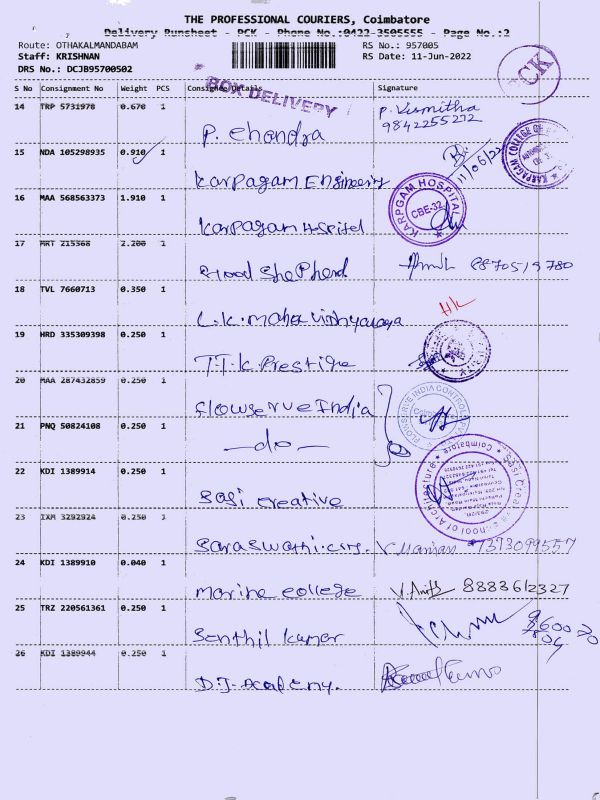 THE PROFESSIONAL COURIERS, Coimbatore
Delivery Runsheet - PCK - Phone No.:0422-3505555 - Page No.:2
Route: OTHAKALMANDABAM
RS No.: 957005
Staff: KRISHNAN
RS Date: 11-Jun-2022
DRS No.: DCJB95700502
PCK
S No Consignment No Weight PCS Consignee Details Signature
BOX DELIVERY
14 TRP 5731978 0.670 1
P. Chandra
P. Vusmitha
9842255272
15 NDA 105298935 0.910 1
Karpagam Engineering
11/06/22
16 MAA 568563373 1.910 1
Karpagam Hospital
KARPGAM HOSPITAL
CBE-32
17 MRT 215368 2.200 1
Good Shepherd
8870519780
18 TVL 7660713 0.350 1
L.K. Maha Vidhyalaya
19 HRD 335309398 0.250 1
T.T.K. Prestige
20 MAA 287432859 0.250 1
Flowserve India
FLOWSERVE INDIA CONTROL
21 PNQ 50824108 0.250 1
-do-
22 KDI 1389914 1
Sasi Creative
Sasi Creative School of Architecture
Coimbatore
23 IXM 3292924 0.250 1
Saraswathi
7373099557
24 KDI 1389910 0.040 1
Marine College
8883612327
25 TRZ 220561361 0.250 1
Senthil Kumar
26 KDI 1389944 0.250 1
D.J. Academy.